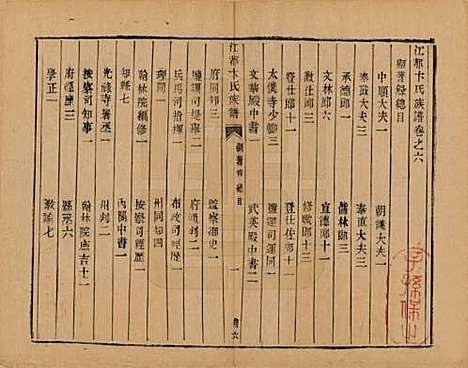 江都卞氏族譜卷之六
顯著錄總目
中順大夫一 朝議大夫一
奉直大夫三 奉直大夫二
承德郎一 儒林郎三
文林郎六 宣德郎一
徵仕郎一 修職郎三
登仕郎十一 登仕佐郎二
太僕寺少卿三 鹽運司運同一
文華殿中書一 武英殿中書二
江都卞氏族譜
總目
一
卷六
府同知三 監察御史一
鹽運司提舉二 府通判二
兵馬司指揮一 布政司經歷一
理問一 州同知四
知縣七 按察司經歷一
翰林院編修一 內閣中書一
光祿寺署丞一 州判二
按察司知事一 翰林院庶吉士一
府經歷三 縣丞六
學正一 教諭七